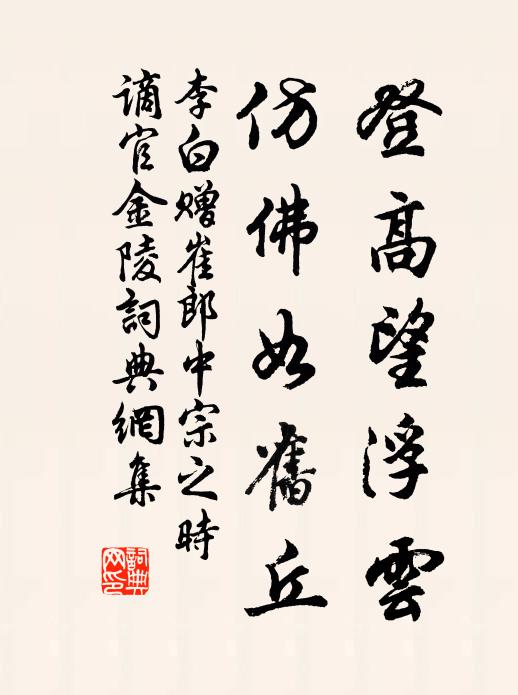 登高望浮雲
仿佛如舊丘
李白赠崔郎中宗之時
谪官金陵詞典網集
詞典
网印